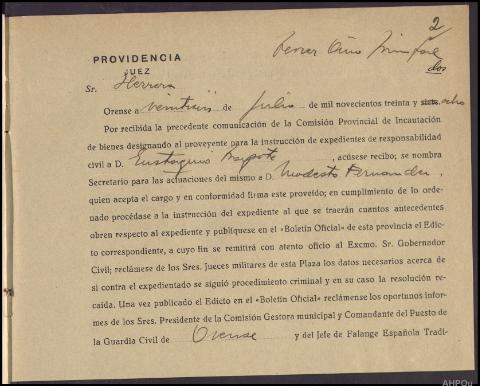 2
dos
PROVIDENCIA
JUEZ
Sr. Herrera
Orense a veintiseis de Julio de mil novecientos treinta y siete. ocho
Por recibida la precedente comunicación de la Comisión Provincial de Incautación
de bienes designando al proveyente para la instrucción de expedientes de responsabilidad
civil a D. Eustaquio , acúsese recibo; se nombra
Secretario para las actuaciones del mismo a D. Modesto Fernandez,
quien acepta el cargo y en conformidad firma este proveído; en cumplimiento de lo orde-
nado procédase a la instrucción del expediente al que se traerán cuantos antecedentes
obren respecto al expediente y publíquese en el «Boletín Oficial» de esta provincia el Edic-
to correspondiente, a cuyo fin se remitirá con atento oficio al Excmo. Sr. Gobernador
Civil; reclámese de los Sres. Jueces militares de esta Plaza los datos necesarios acerca de
si contra el expedientado se siguió procedimiento criminal y en su caso la resolución re-
caída. Una vez publicado el Edicto en el «Boletín Oficial» reclámense los oportunos infor-
mes de los Sres. Presidente de la Comisión Gestora municipal y Comandante del Puesto de
la Guardia Civil de Orense y del Jefe de Falange Española Tradi-
AHPOu